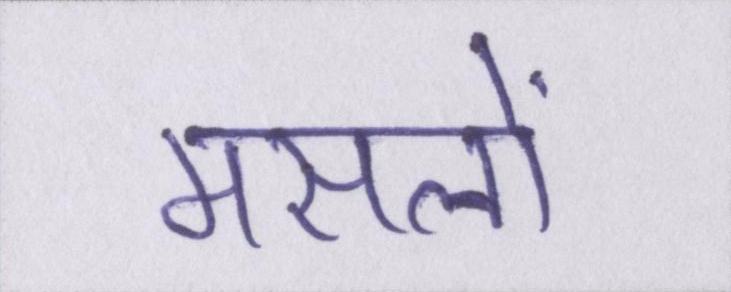 मसलों